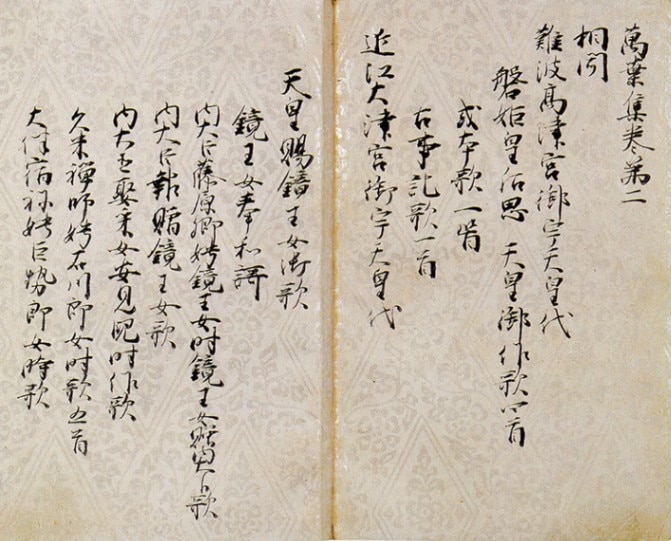 萬葉集巻第二
相聞
難波高津宮御宇天皇代
磐姫皇后思天皇御作歌四首
或本歌一首
古事記歌一首
近江大津宮御宇天皇代
天皇賜鏡王女御歌
鏡王女奉和謌
内大臣藤原卿娉鏡王女時鏡王女贈内大臣歌
内大臣報贈鏡王女歌
内大臣娶采女安見兒時作歌
久米禅師娉石川郎女時歌五首
大伴宿祢娉巨勢郎女時歌